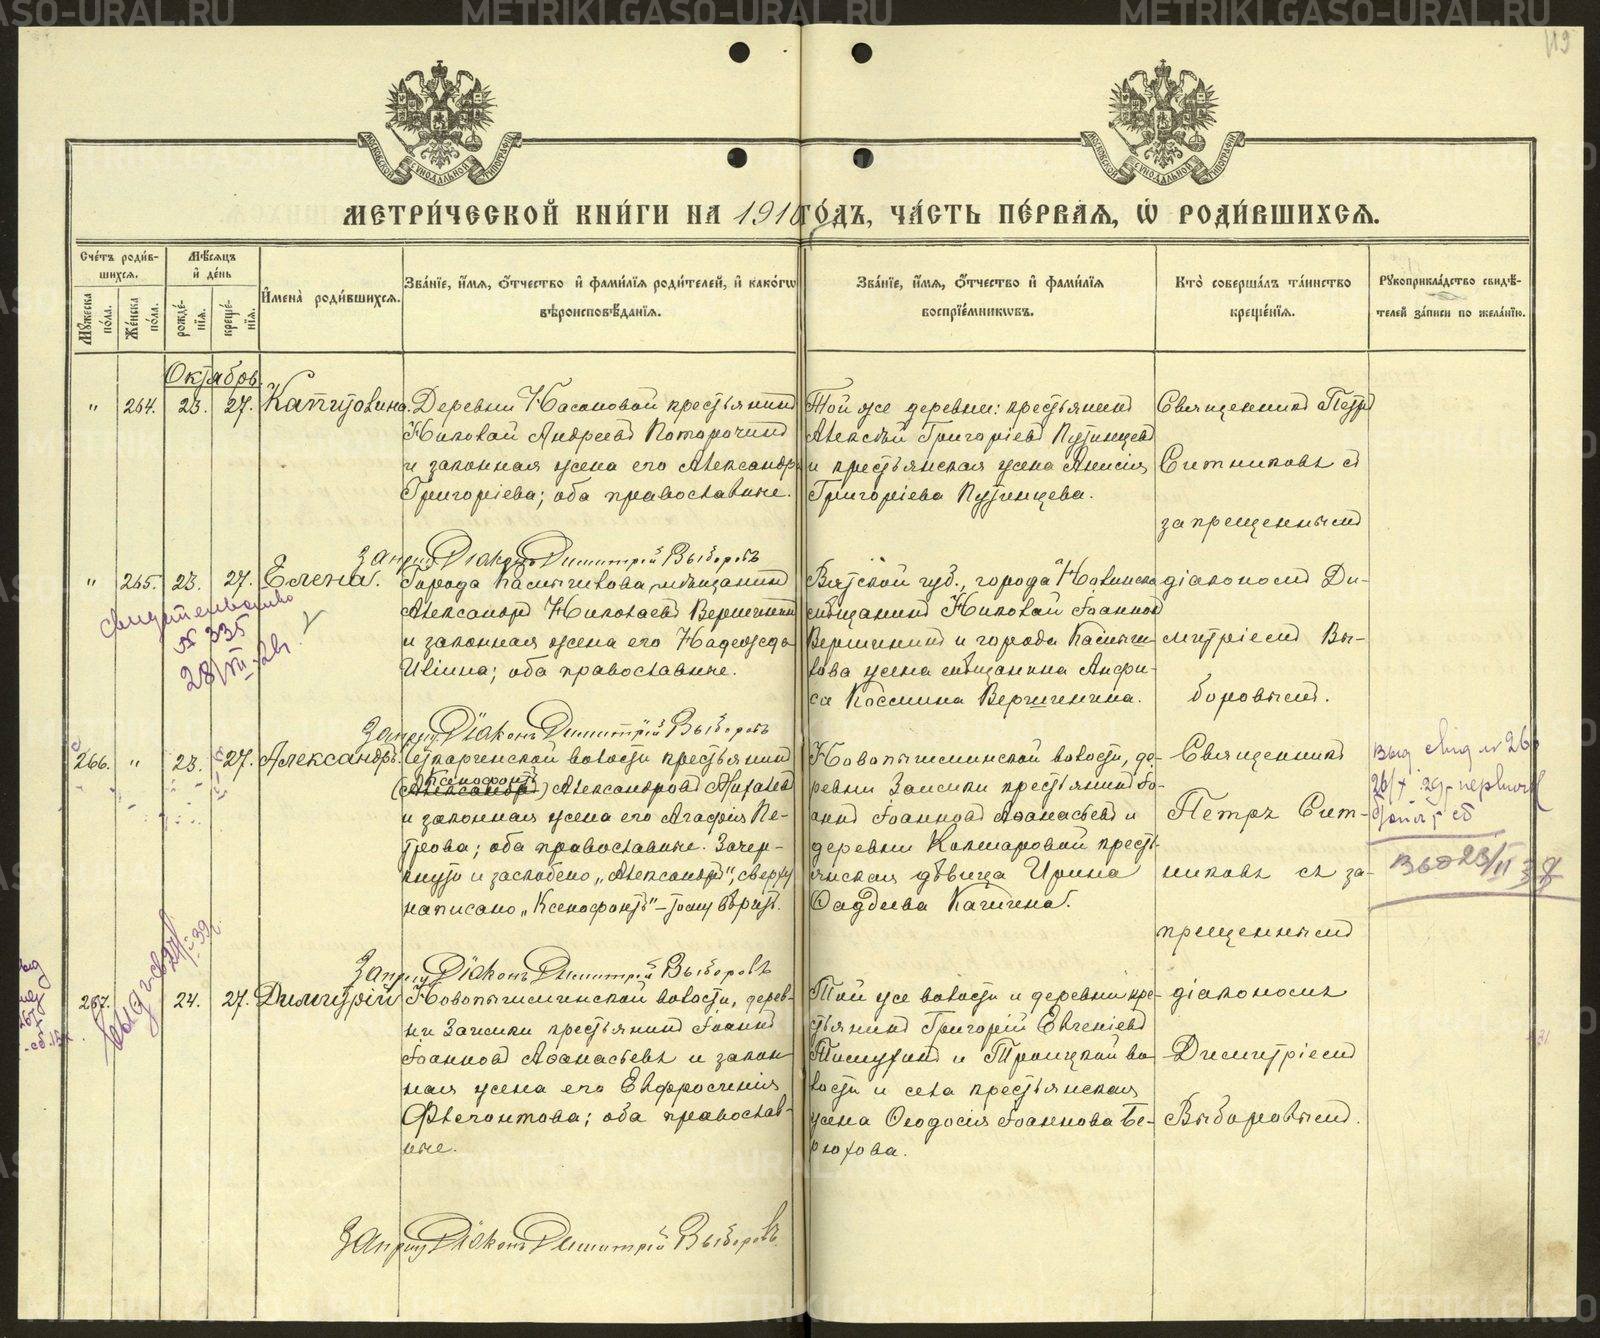 119
МОСКОВСКОЙ СѴНОДАЛЬНОЙ ТИПОГРАФІИ
МОСКОВСКОЙ СѴНОДАЛЬНОЙ ТИПОГРАФІИ
МЕТРИ́ЧЕСКОЙ КНИ́ГИ НА 1910 ГО́ДЪ, ЧА́СТЬ ПЕ́РВАЯ, Ѡ РОДИ́ВШИХСЯ.
Сче́тъ роди́в-
шихся.
Му́жеска по́ла.
Же́нска по́ла.
Мѣ́сяцъ
и҆ де́нь
рожде́-
нїя.
креще́-
нїя.
И҆мена̀ роди́вшихся.
Зва́нїе, и҆́мя, ѻ҆́тчество и҆ фами́лїя роди́телей, и҆ како́гѡ
вѣроисповѣ́данїя.
Зва́нїе, и҆́мя, ѻ҆́тчество и҆ фами́лїя
воспрїе́мникѡвъ.
Кто̀ соверша́лъ та́инство
креще́нїя.
Рꙋкоприкла́дство свидѣ́-
телей за́писи по жела́нїю.
Октябрь.
" 264. 23. 27. Капитолина.
Деревни Касановой крестьянинъ
Николай Андреевъ Поторочинъ
и законная жена его Александра
Григоріева; оба православные.
Той же деревни: крестьянинъ
Алексѣй Григоріевъ Путинцевъ
и крестьянская жена Анисія
Григоріева Путинцева.
Священникъ Петръ
Ситниковъ съ
запрещеннымъ
Запрещ Діаконъ Димитрій Выборовъ
" 265. 23. 27. Елена.
Города Камышлова мѣщанинъ
Александръ Николаевъ Вершининъ
и законная жена его Надежда
Ивлина; оба православные.
Вятской губ., города
мѣщанинъ Николай Іоанновъ
Вершининъ и города Камыш-
лова жена мѣщанина Анфи-
са Космина Вершинина.
діакономъ Ди-
митріемъ Вы-
боровымъ.
свидетельство
№ 335
28/VII-
Запрещ Діаконъ Димитрій Выборовъ
266. " 23. 27. Александръ.
волости крестьянинъ
Ксенофонтъ
(Александръ) Александровъ
и законная жена его Агафія Пе-
трова; оба православные. Зачер-
кнуто и заскоблено „Александръ", сверху
написано „Ксенофонтъ" – тому вѣрить.
Новопышминской волости, де-
ревни Заимки крестьянинъ Іо-
аннъ Іоанновъ Аѳанасьевъ и
деревни Кашаровой кресть-
янская дѣвица Ирина
Ѳаддеева Качигина.
Священникъ
Петръ Сит-
никовъ съ за-
прещеннымъ
Выд свид № 266
26/X 29г первичн
Выд 23/II 38
Запрещ Діаконъ Димитрій Выборовъ
267. 24. 27. Димитрій
Новопышминской волости, дерев-
ни Заимки крестьянинъ Іоаннъ
Іоанновъ Аѳанасьевъ и закон-
ная жена его Евфросинія
Флегонтова; оба православ-
ные.
Той же волости и деревни кре-
стьянинъ Григорій Евгеніевъ
и Троицкой во-
лости и села крестьянская
жена Ѳеодосія Іоаннова Бе-
рюхова.
діакономъ
Димитріемъ
Выборовымъ.
Запрещ Діаконъ Димитрій Выборовъ
METRIKI.GASO-URAL.RU